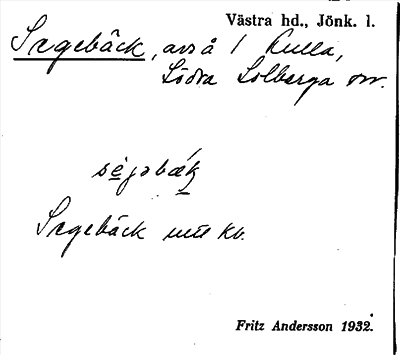 Västra hd., Jönk. l.
Segebäck, avs å / Kulla,
Södra Solberga sn.
Segebäck mtl kv.
Fritz Andersson 1932.